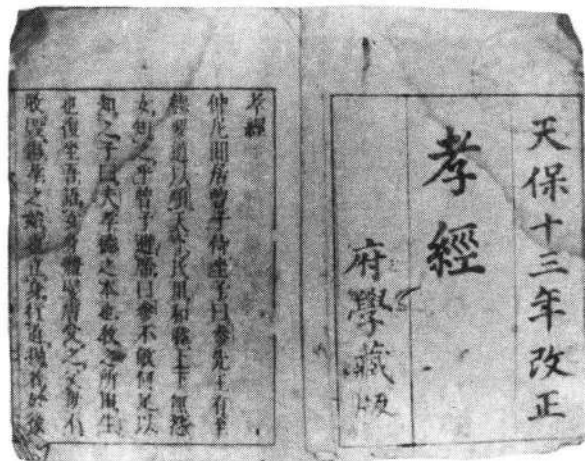 天保十三年改正
孝經
府學藏版
孝經
仲尼間居曾子侍坐子曰參先王有至
德要道以順天下民用和睦上下無怨
女知之乎曾子避席曰參不敏何足以
知之子曰夫孝德之本也教之所由生
也復坐吾語女身體髮膚受之父母不
敢毀傷孝之始也立身行道揚名於後